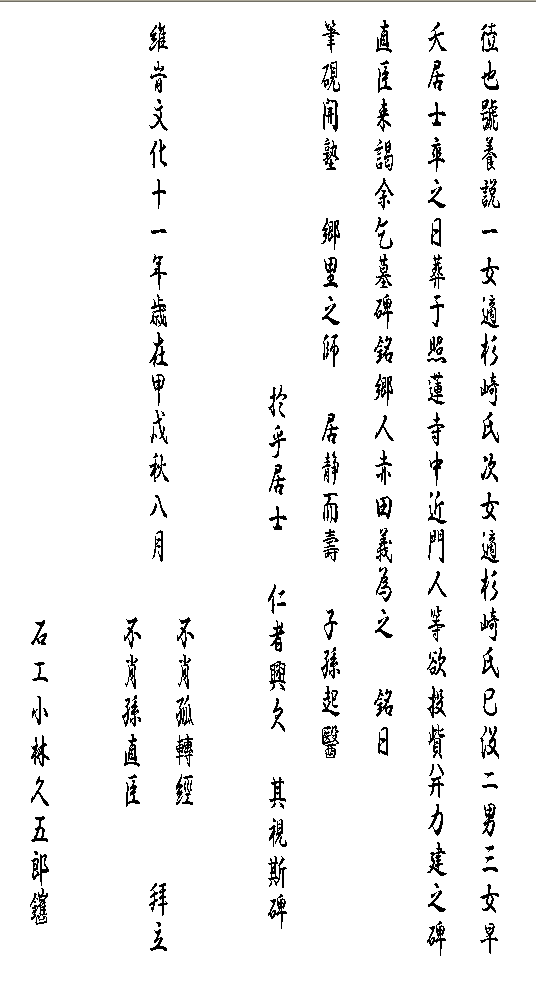 徑也號養説一女適杉崎氏次女適杉崎氏已没二男三女早
夭居士卒之日葬于照蓮寺中近門人等欲投貲并力建之碑
直臣来謁余乞墓碑銘郷人赤田義為之 銘曰
筆硯開塾 郷里之師 居静而壽 子孫起醫
於乎居士 仁者興久 其視斯碑
維旹文化十一年歳在甲戌秋八月
不肖孤轉經
不肖孫直臣 拜立
石工小林久五郎鐫